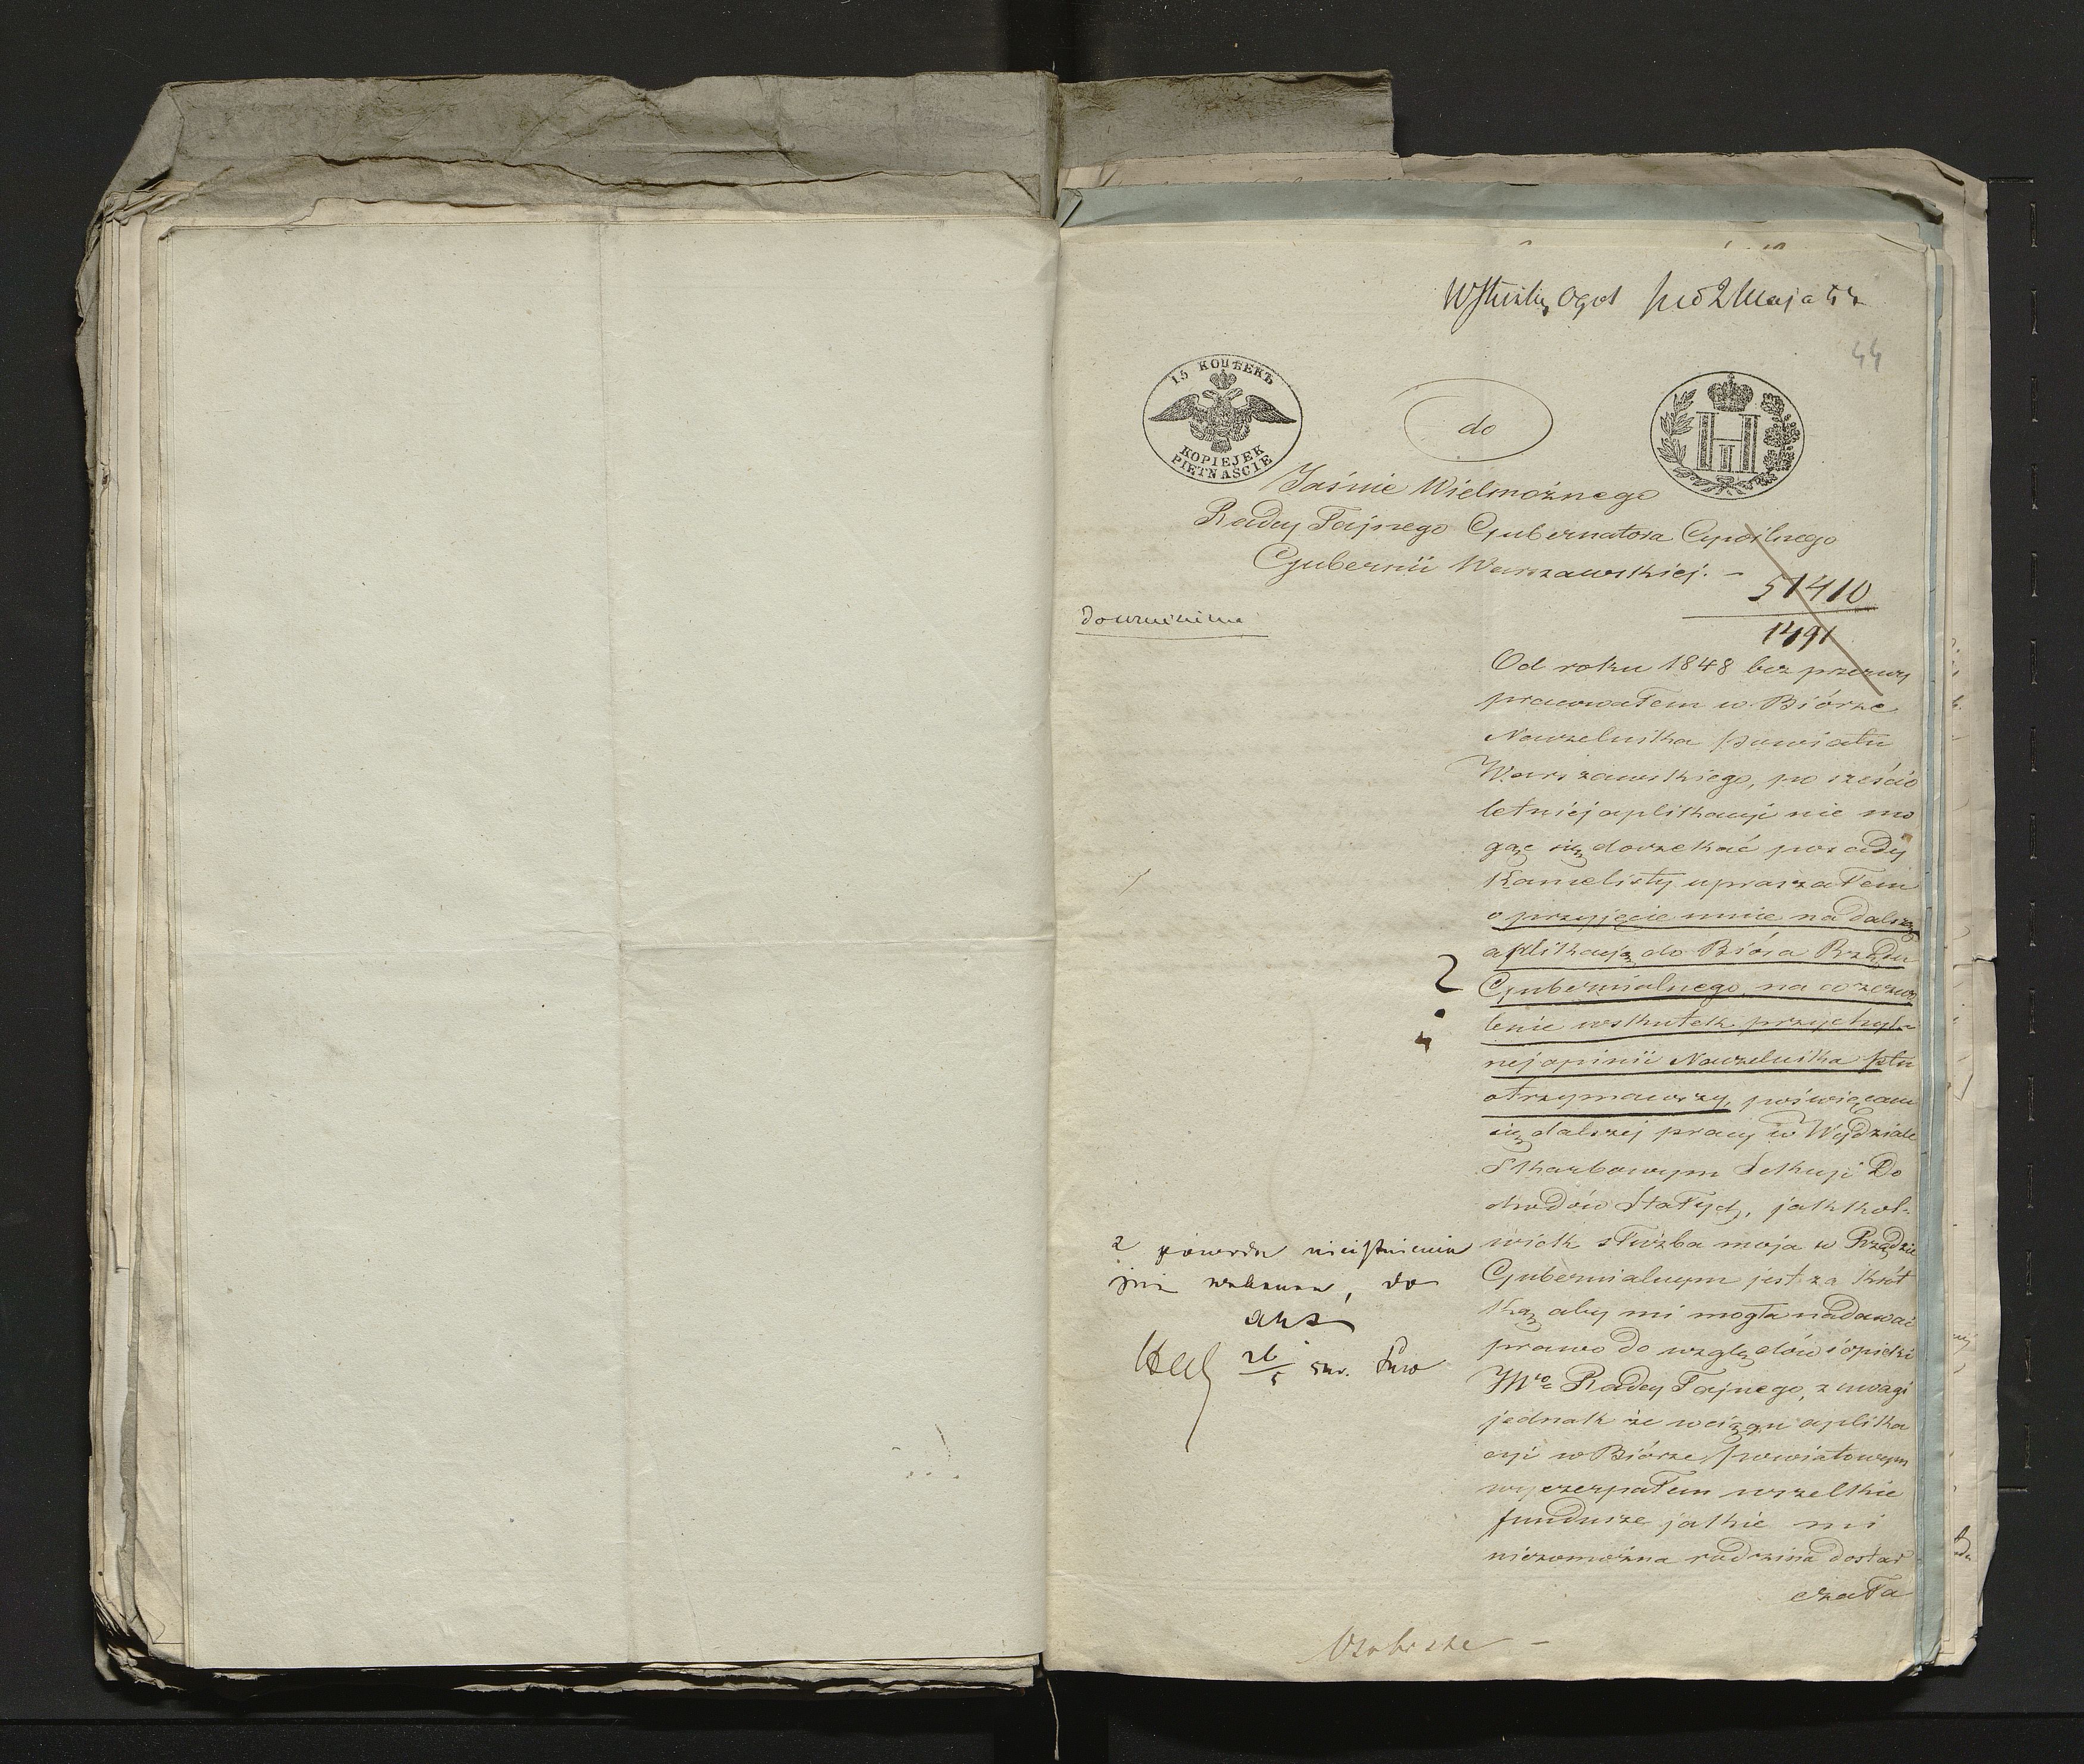 44
15 КОПѢЕКЪ
KOPIEJEK
PIETNAŚCIE
do
Jaśnie Wielmożnego
Radcy Tajnego Gubernatora Cywilnego
Gubernii Warszawskiej. –
51410
1491
Od roku 1848 bez przerwy
pracowałem w Biórze
Naczelnika Powiatu
Warszawskiego, po sześcio
letniej aplikacyi nie mo
gąc się doczekać posady
Kancelisty upraszałem
o przyjęcie mnie na dalszą
aplikacyą do Bióra Rządu
Gubernialnego, na co zezwo
lenie wskutek przychyl-
nej opinii Naczelnika Ptu
otrzymawszy, poświęcam
się dalszej pracy w Wydziale
Skarbowym Sekcyi Do
chodów Stałych, jakkol-
wiek służba moja w Rządzie
Gubernialnym jest za krót
ką aby mi mogła nadawać
prawo do względów i opieki
JWgo Radcy Tajnego, z uwagi
jednak że w ciągu aplika
cyi w Biórze Powiatowym
wyczerpałem wszelkie
fundusze jakie mi
niezamożna rodzina dostar
czała
z powodu nieistnienia
do
akt
26/5